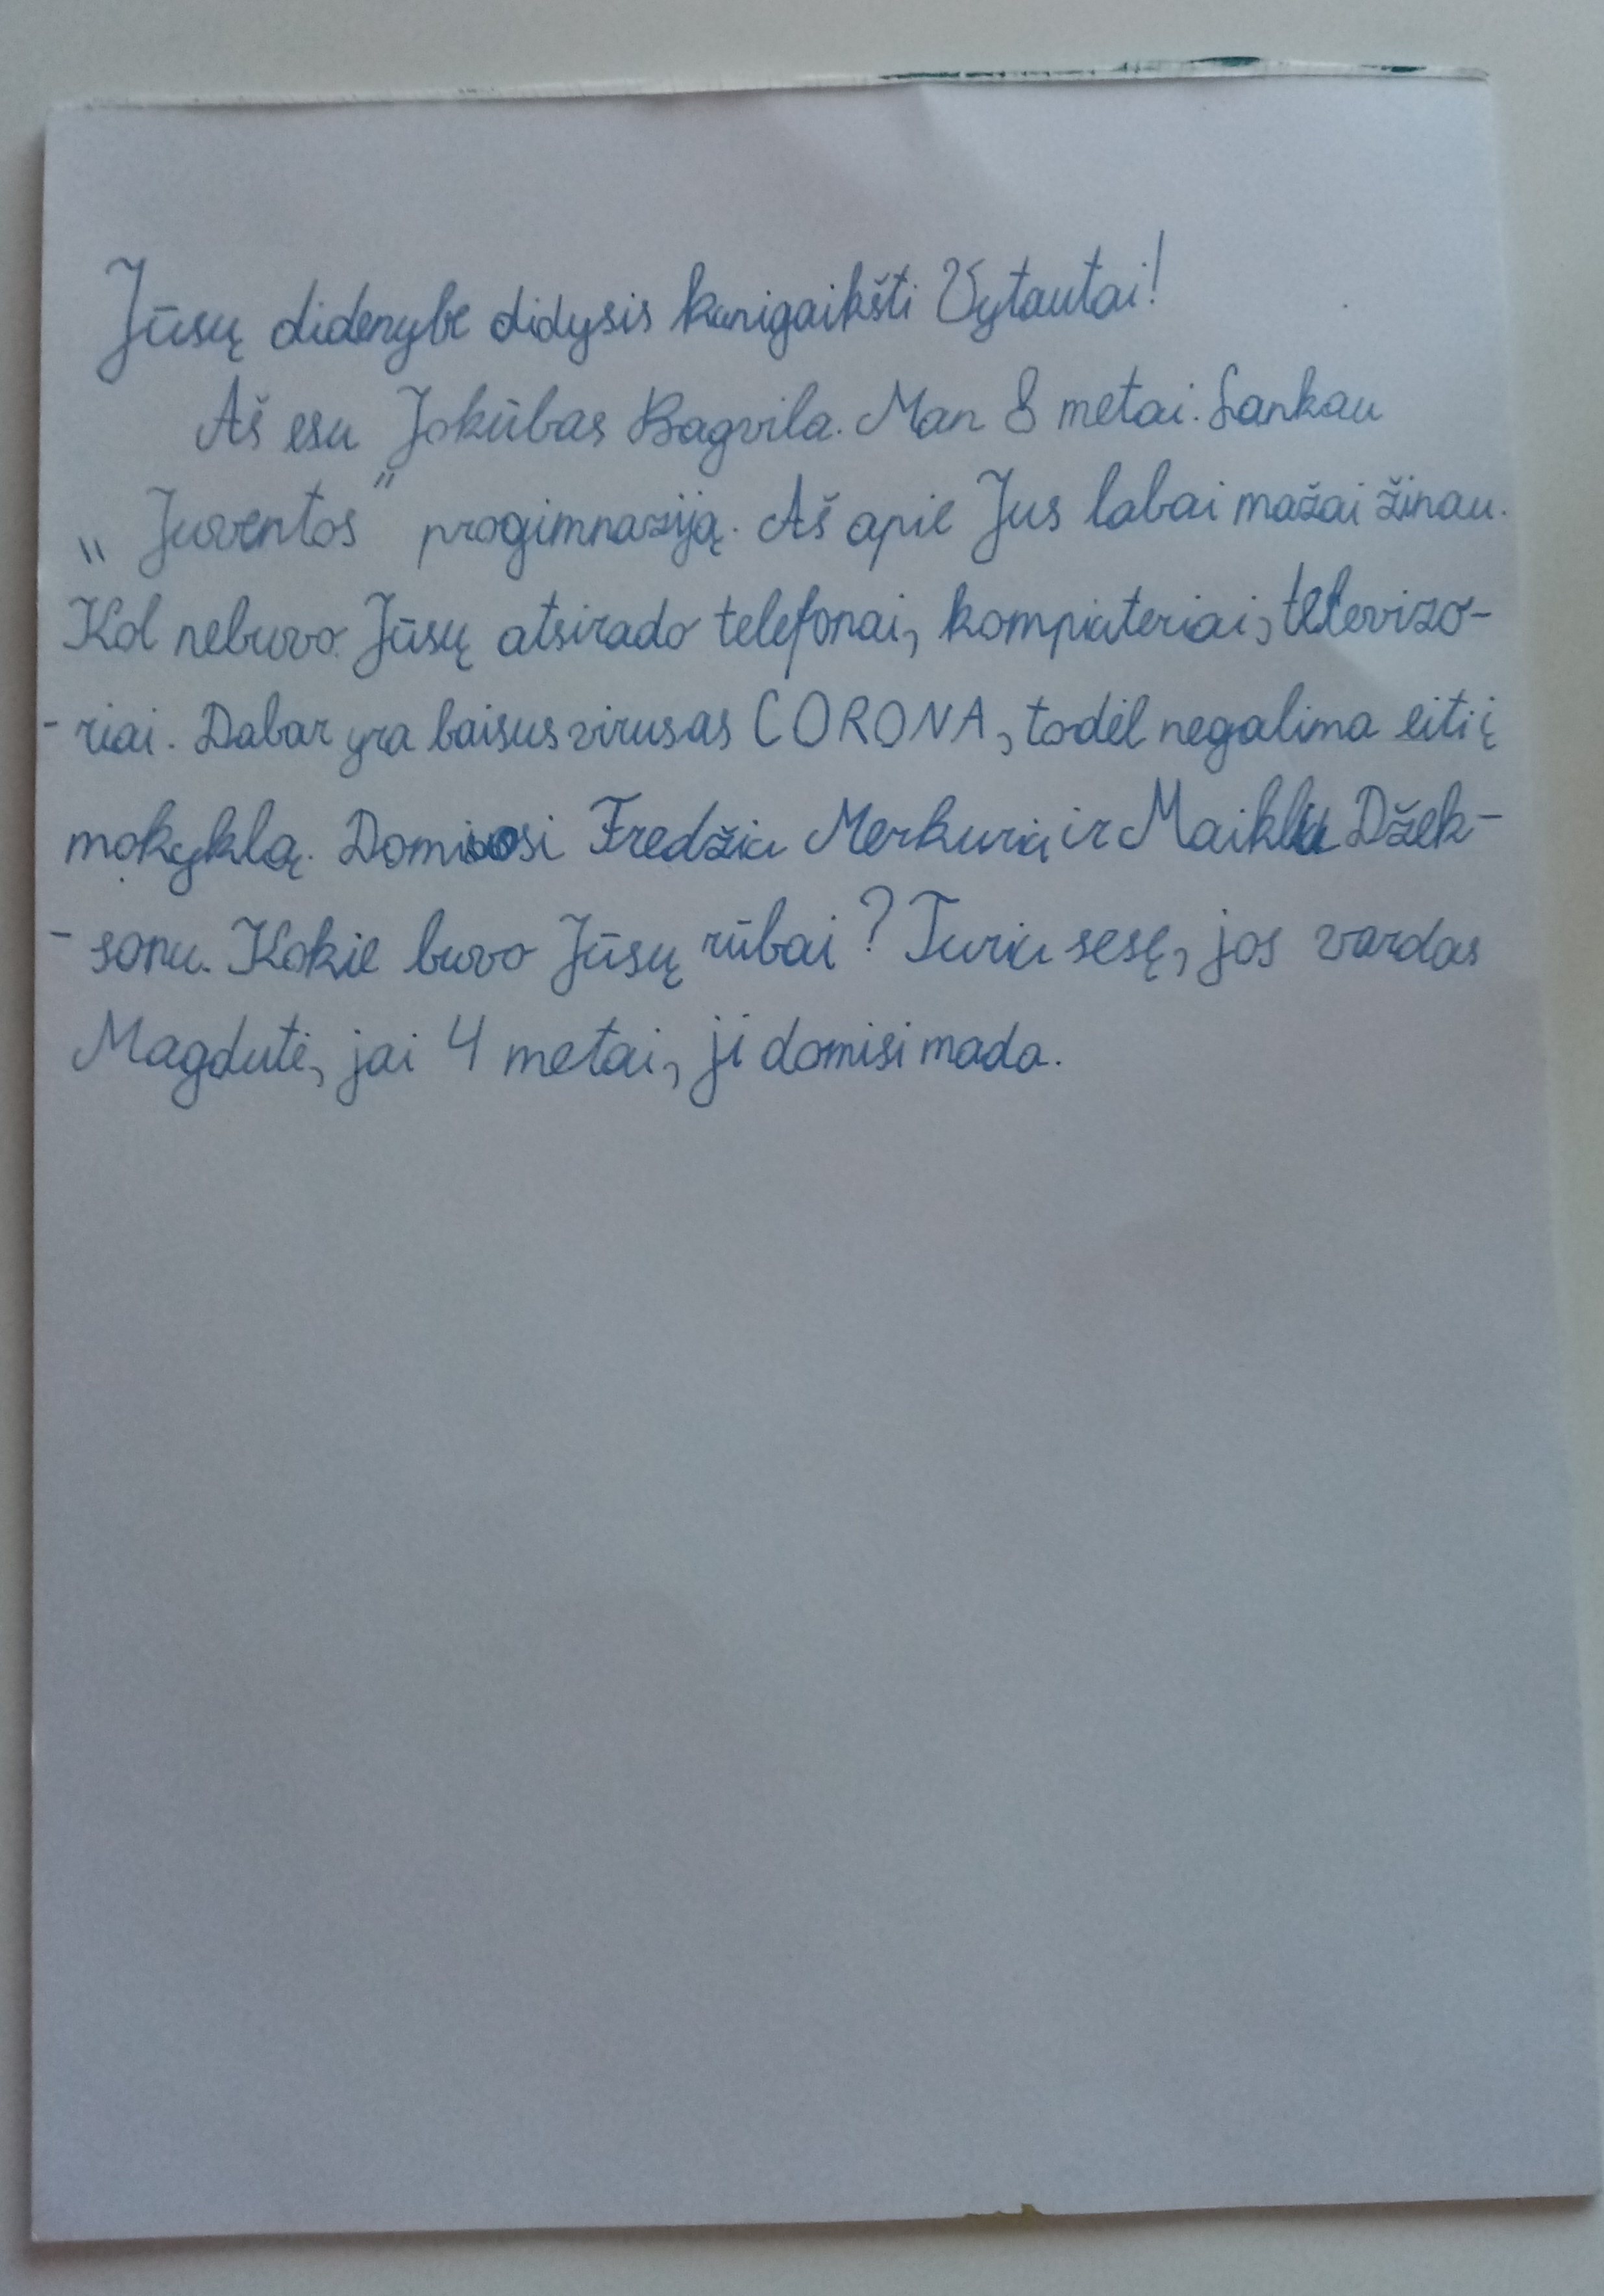 Jūsų didenybe didysis kunigaikšti Vytautai!
Aš esu Jokūbas Bagvila. Man 8 metai. Lankau
„Juventos" progimnaziją. Aš apie Jus labai mažai žinau.
Kol nebuvo Jūsų atsirado telefonai, kompiuteriai, televizo-
-riai. Dabar yra baisus virusas CORONA, todėl negalima eiti į
mokyklą. Domiuosi Fredžiu Merkuriu ir Maiklu Džek-
-sonu. Kokie buvo Jūsų rūbai? Turiu sesę, jos vardas
Magdutė, jai 4 metai, ji domisi mada.